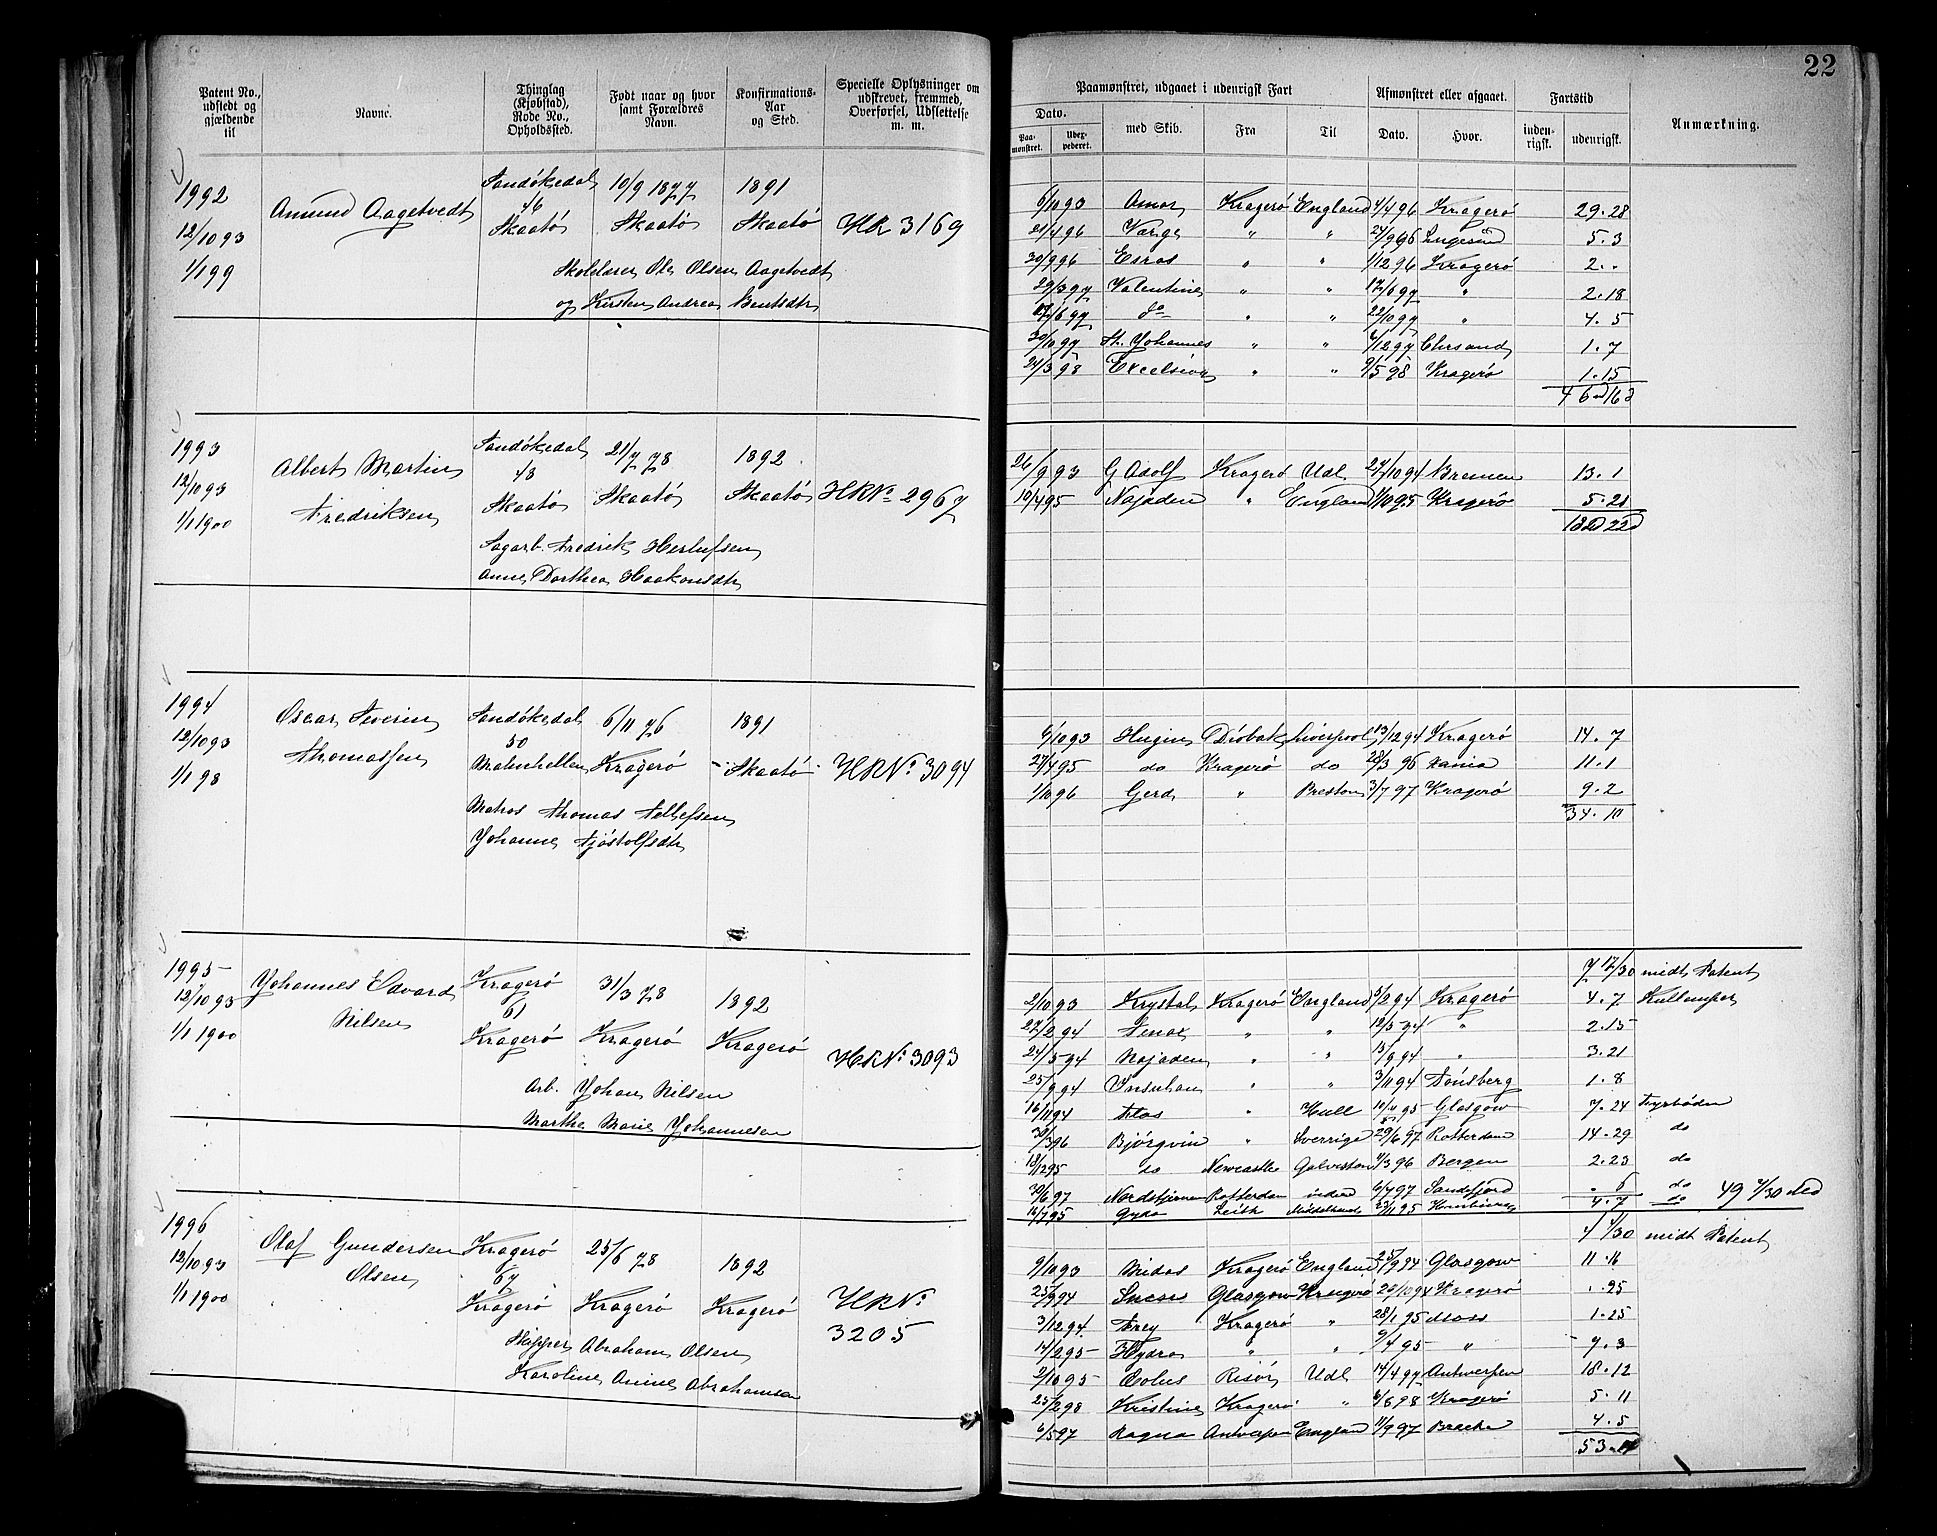 22
Patent No., udstedt og gjældende til
Navne.
Thinglag (Kjøbstad), Rode No., Opholdssted.
Født naar og hvor samt Forældres Navn.
Konfirmations-Aar og Sted.
Specielle Oplysninger om udskrevet, fremmed, Overførsel, Udslettelse m. m.
Paamønstret, udgaaet i udenrigsk Fart
Afmønstret eller afgaaet.
Fartstid
Anmærkning.
Dato.
Paamønstret.
Udexpederet.
med Skib.
Fra
Til
Dato.
Hvor.
indenrigsk.
udenrigsk.
1992
12/10 93
1/1 99
Amund Aagetvedt
Sandökedal
46
Skaatö
10/9 1877
Skaatö
1891
Skaatö
HR 3169
Ole Olsen Aagetvedt
og Kirsten Andrea Bentsdtr
6/10 93 Amor Kragerö England 4/4 96 Kragerö 29.28
21/4 96 Varge " " 24/9 96 5.3
30/9 96 Esras " " 1/12 96 Kragerö 2..
29/3 97 Valentine " " 17/6 97 " 2.18
17/6 97 do " " 22/10 97 " 4.5
30/10 97 St. Johannes " " 7/12 97 Chrsand 1.7
24/3 98 Excelsior " " 9/5 98 Kragerö 1.15
46 m 16 d
1993
12/10 93
1/1 1900
Albert Martin Fredriksen
Sandökedal
48
Skaatö
21/7 78
Skaatö
1892
Skaatö
HR No 2967
Sagarb. Fredrik Herlufsen
Anne Dorthea Haakonsdtr
26/9 93 G Adolf Kragerö Udl 27/10 94 Bremen 13.1
10/4 95 Najaden " England 1/10 95 Kragerö 5.21
18 m 22 d
1994
12/10 93
1/1 98
Oscar Severin Thomassen
Sandökedal
50
Malmhellen
6/11 76
Kragerö
1891
Skaatö
HR No. 3094
Matros Thomas Tellefsen
Johanne Tjöstolfsdtr
6/10 93 Hugin Dröbak Liverpool 13/12 94 Kragerö 14.7
27/4 95 do Kragerö do 28/3 96 Xania 11.1
1/10 96 Gerd " Preston 3/7 97 Kragerö 9.2
34.10
1995
12/10 93
1/1 1900
Johannes Edvard Nilsen
Kragerö
61
Kragerö
31/3 78
Kragerö
1892
Kragerö
HR No. 3093
Arb. Johan Nilsen
Marthe Marie Johannesen
7 17/30 midt Patent
2/10 93 Krystal Kragerö England 5/2 94 Kragerö 4.7 Kullemper
27/2 94 Venax " " 12/5 94 " 2.15
24/5 94 Najaden " " 15/9 94 " 3.21
25/9 94 Insulan " " 3/11 94 Tönsberg 1.8
16/11 94 Atlas " Hull 10/4 95 Glasgow 7.24 Fyrböder
30/3 96 Björgvin " Sverrige 29/6 97 Rotterdam 14.29 do
18/12 95 do Newcastle Galveston 11/3 96 Bergen 2.23 do
30/6 97 Nordstjernen Rotterdam 6/7 97 Sandefjord . 6 do 49 7/30 Md
16/7 95 Gyda Leith 23/11 95 4.7 do
1996
12/10 93
1/1 1900
Olaf Gundersen Olsen
Kragerö
67
Kragerö
25/6 78
Kragerö
1892
Kragerö
HR No 3205
Skipper Abraham Olsen
Karoline Anine Abrahamsen
4 4/30 midt Patent
9/10 93 Midas Kragerö England 25/9 94 Glasgow 11.16
25/9 94 Glasgow Kragerö 20/10 94 Kragerö . .25
3/12 94 Frey Kragerö " 28/1 95 Moss 1.25
14/2 95 Hydra " " 9/4 95 " - 7.3
2/10 95 Eolus Risör Udl 14/4 97 Antwerpen 18.12
25/2 98 Kristine Kragerö " 6/8 98 Kragerö 5.11
6/5 97 Ragna Antwerpen England 11/9 97 4.5
53.